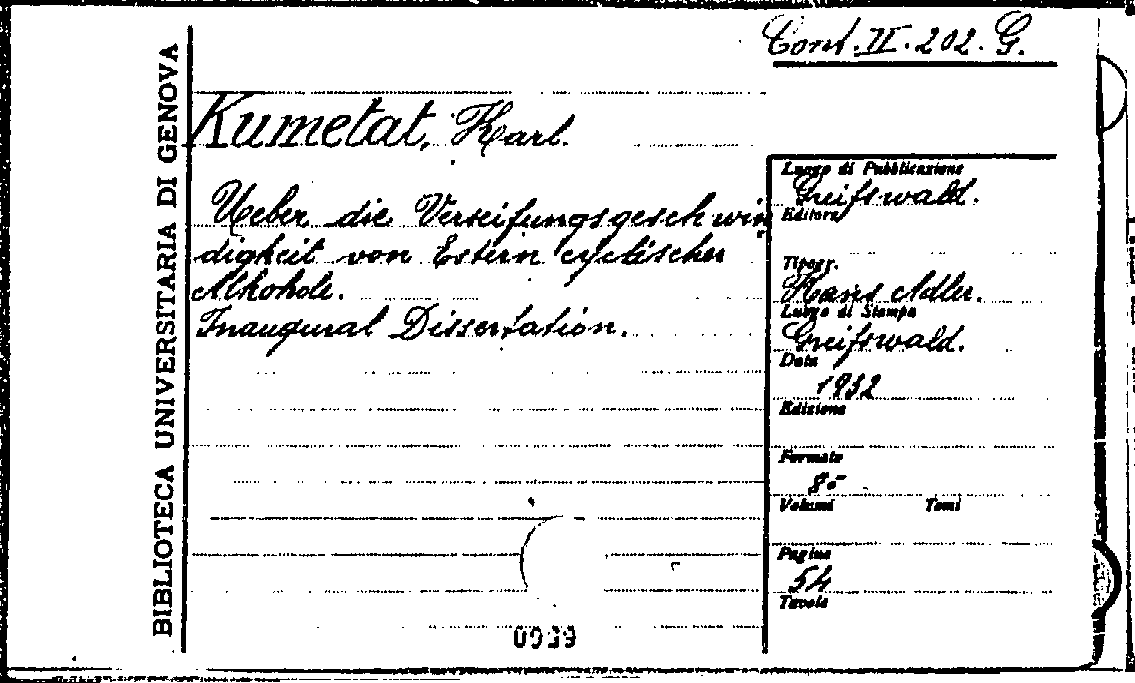 Cont. II. 202. G.
BIBLIOTECA UNIVERSITARIA DI GENOVA
Kumetat, Karl.
Ueber die Verseifungsgeschwin
digkeit von Estern cyclischer
Alkohole.
Inaugural Dissertation.
Luogo di Pubblicazione
Greifswald.
Editore
Tipogr.
Hans Adler.
Luogo di Stampa
Greifswald.
Data
1932
Edizione
Formato
8°
Volumi Tomi
Pagine
54
Tavole